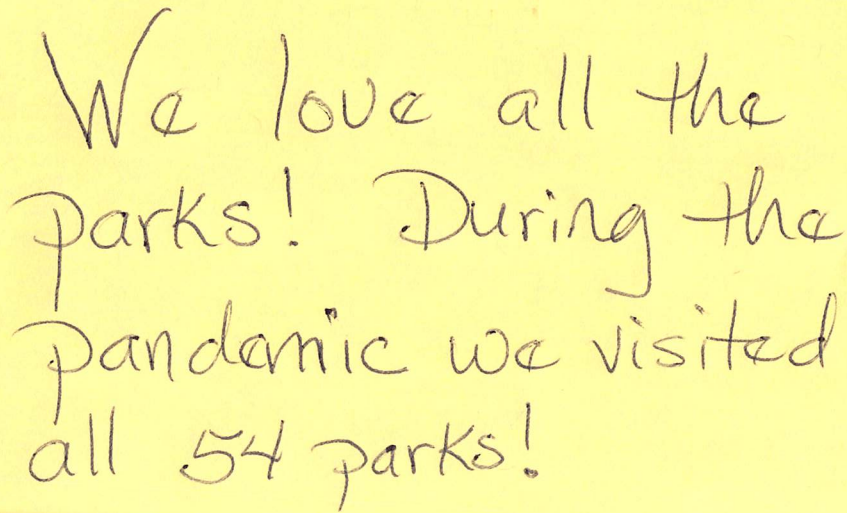 We love all the
parks! During the
pandemic we visited
all 54 parks!